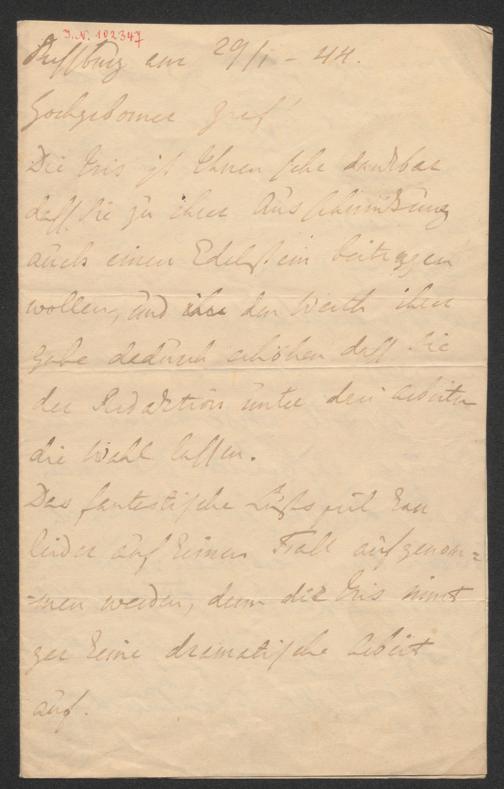 I.N. 102347
am 29/1 - 44.
Hochgeborner Graf!
Die Iris ist Ihnen sehr dankbar
daß Sie zu ihrer Ausschmückung
auch einen Edelstein beitragen
wollen, und den Werth ihrer
Gabe dadurch erhöhen daß Sie
der Redaktion unter drei Arbeiten
die Wahl lassen.
Das fantastische Lustspiel kan
leider auf keinen Fall aufgenom=
=men werden, denn die Iris nimt
gar keine dramatische Arbeit
auf.